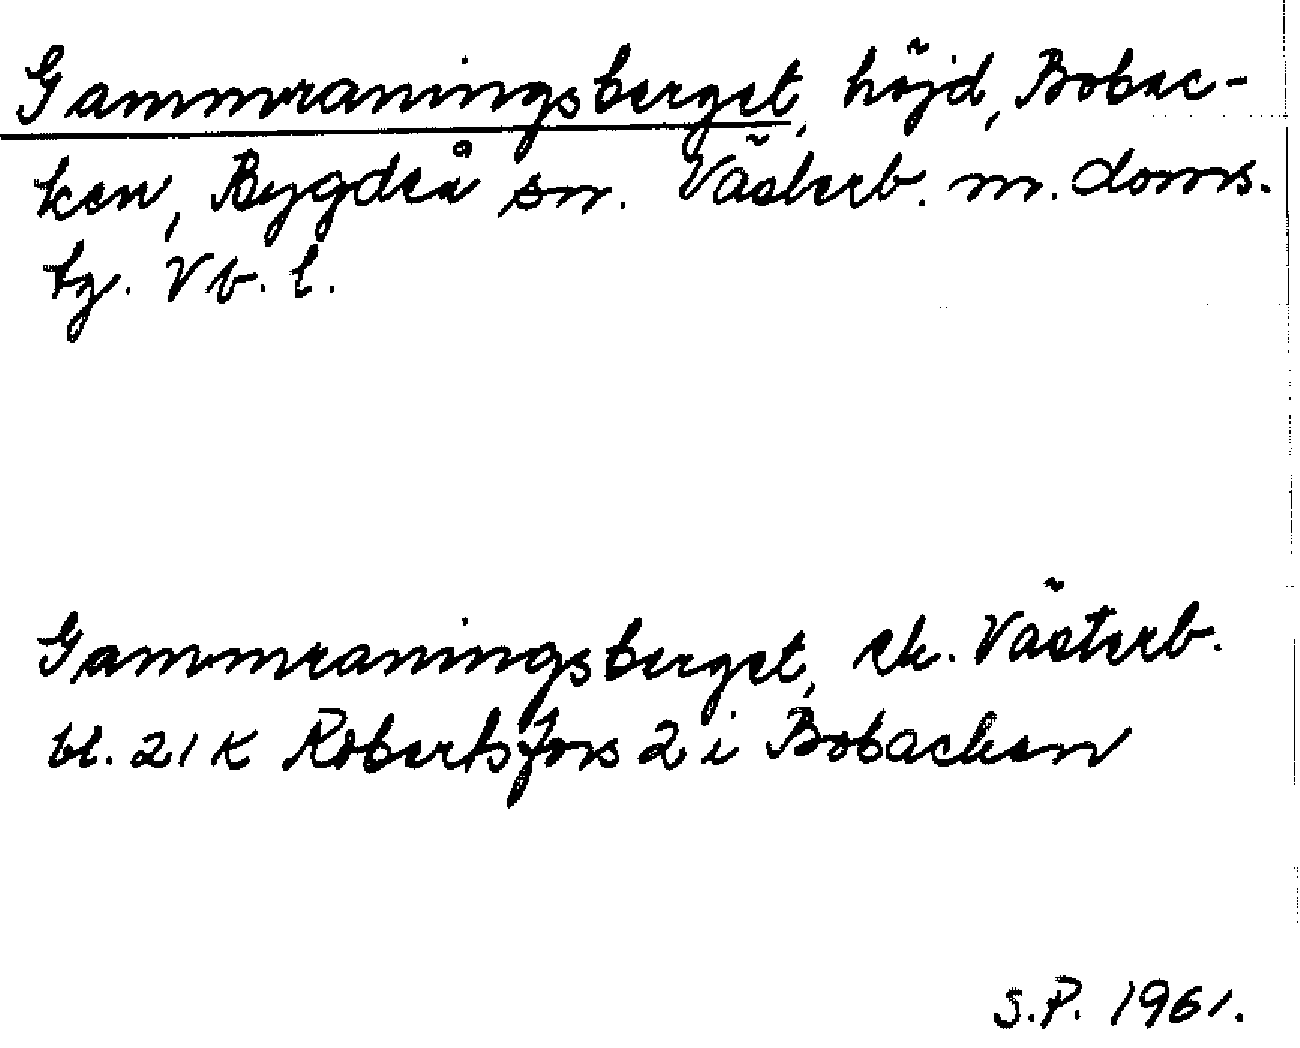 Gammraningsberget, höjd, Bobac-
ken, Bygdeå sn. Västerb. m. doms.
tg. Vb. l.
Gammraningsberget, ek. Västerb.
bl. 21 K Robertsfors 2 i Bobacken
S.P. 1961.